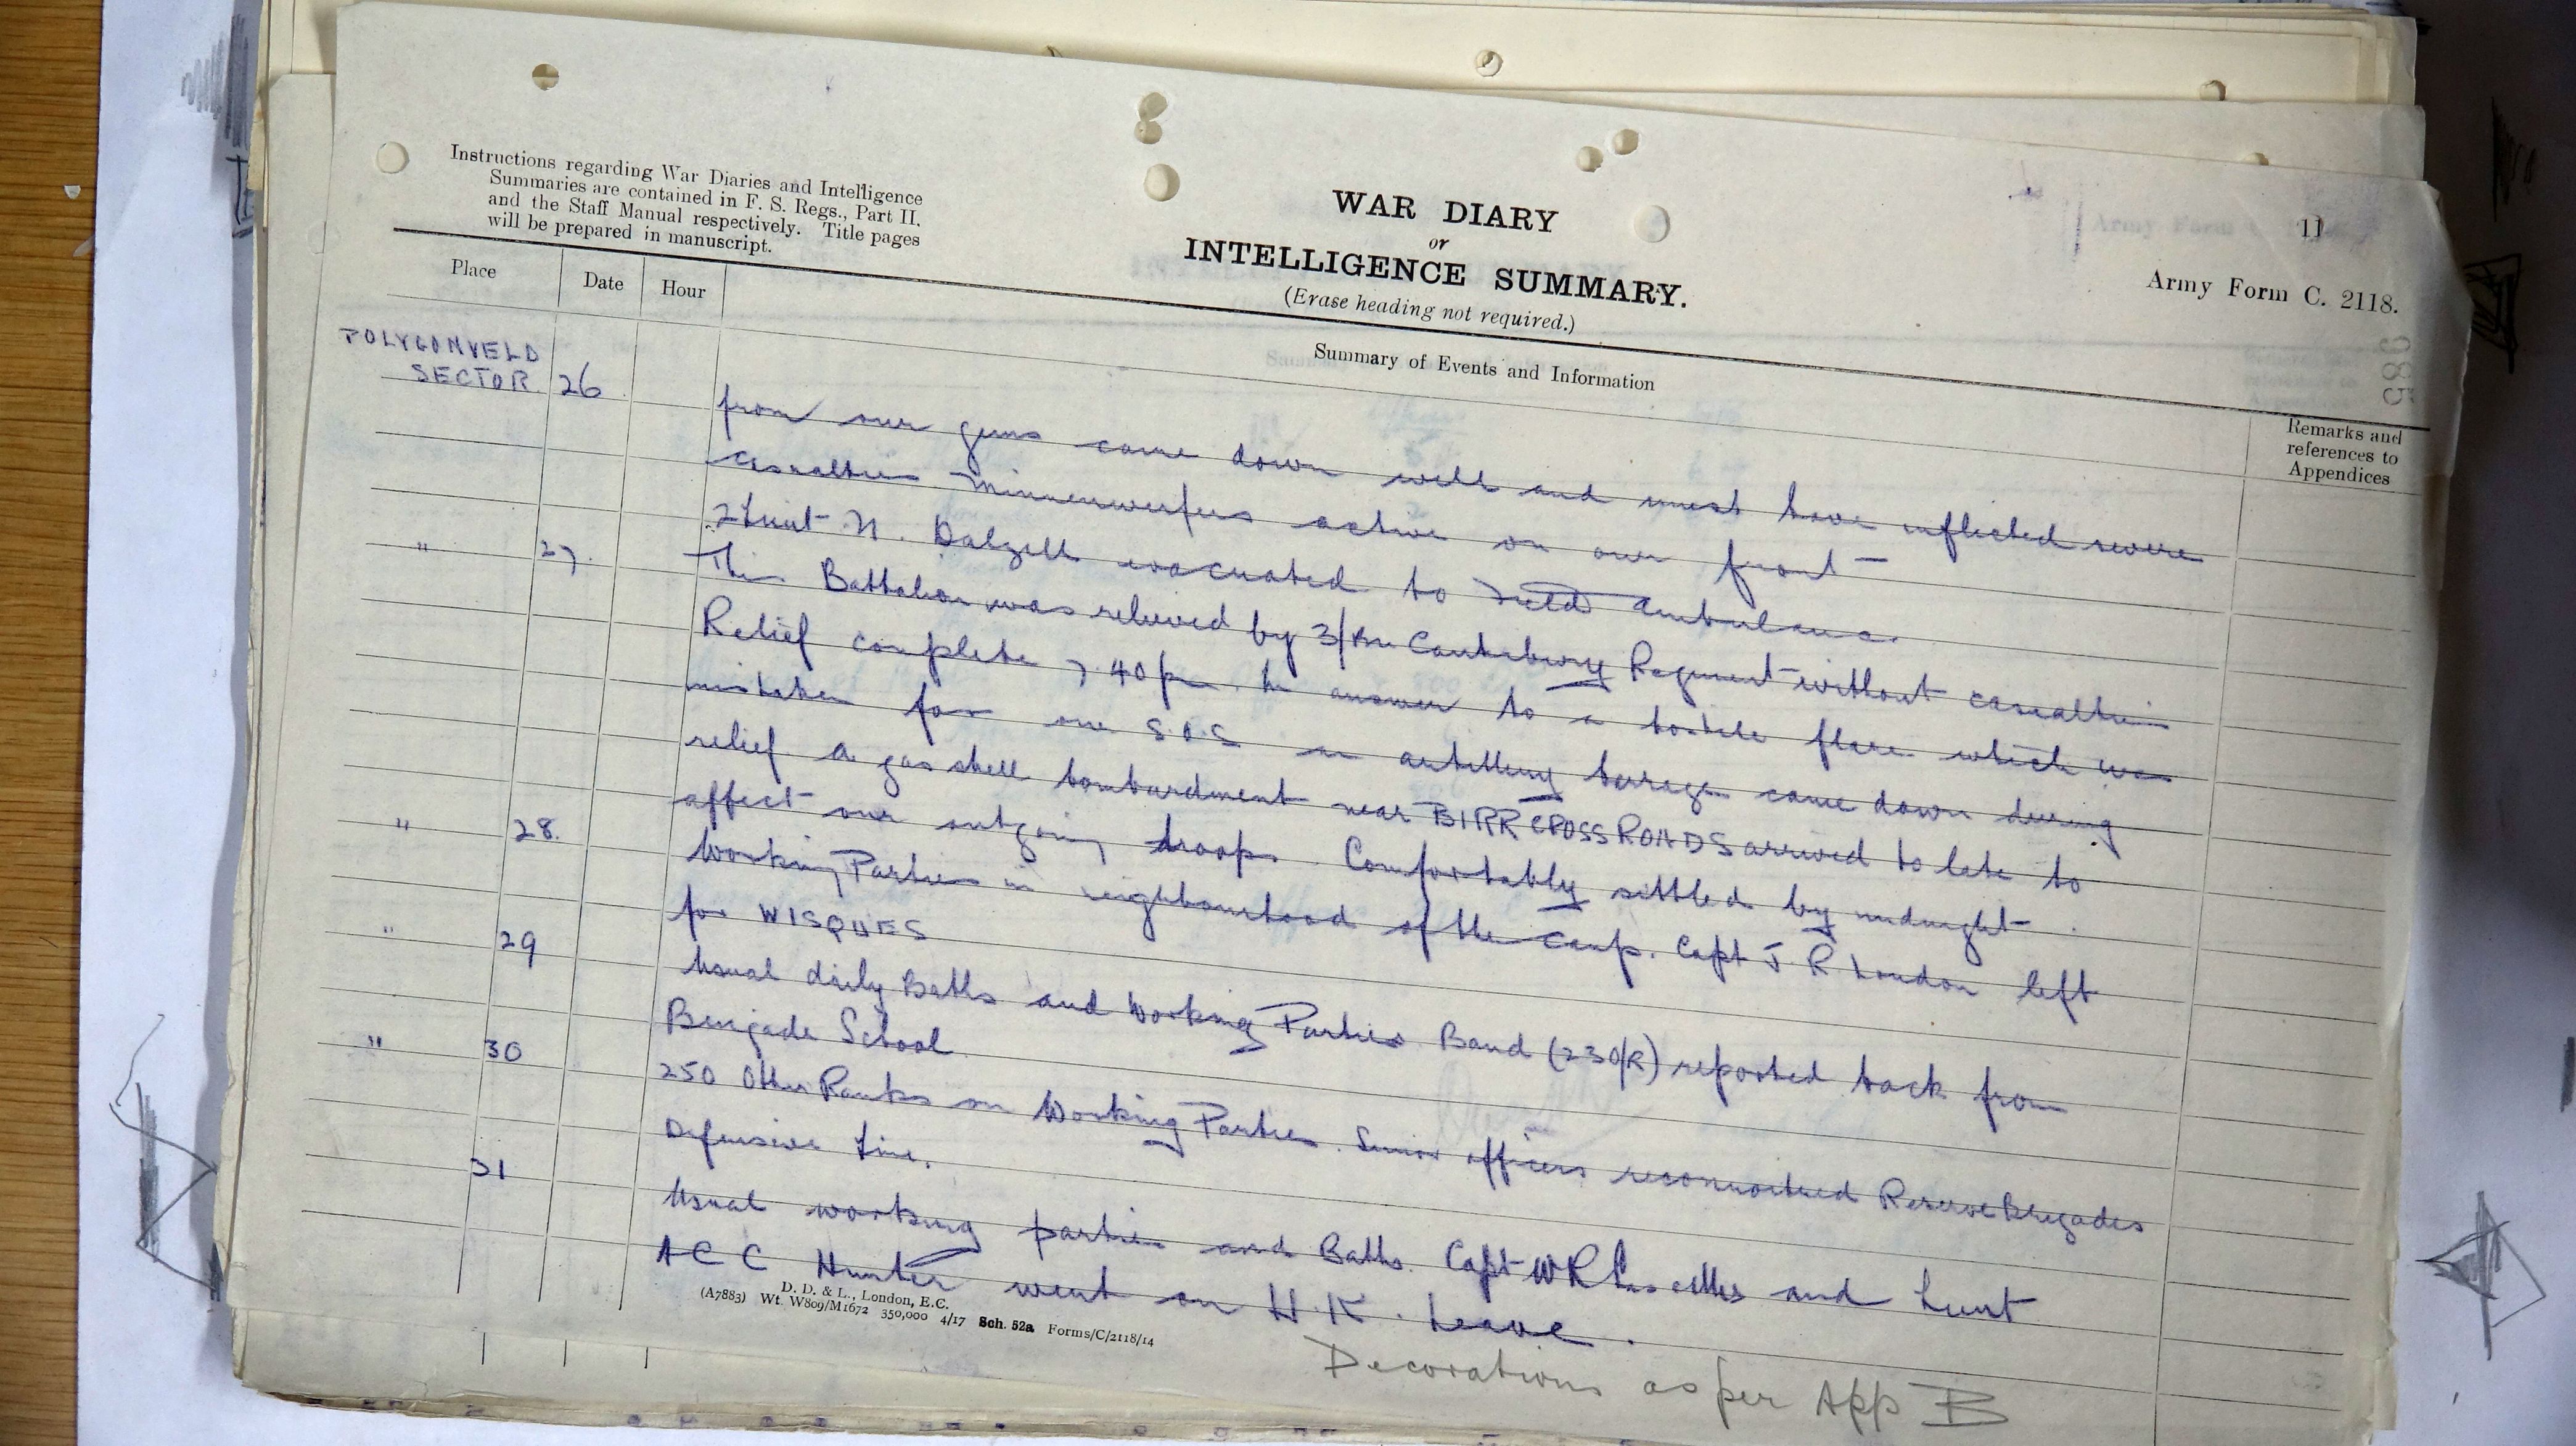 Instructions regarding War Diaries and Intelligence
Summaries are contained in F. S. Regs., Part II.
and the Staff Manual respectively. Title pages
will be prepared in manuscript.
WAR DIARY
or
INTELLIGENCE SUMMARY.
(Erase heading not required.)
11
Army Form C. 2118.
Place
Date
Hour
Summary of Events and Information
Remarks and
references to
Appendices
POLYGONVELD
SECTOR 26
from our guns came down well and must have inflicted severe
casualties Minnenwerfers active on our front —
2Lieut N. Dalzell evacuated to Field Ambulance.
" 27. This Battalion was relieved by 3/Bn Canterbury Regiment without casualties
Relief complete 7 40 pm. In answer to a hostile flare which was
mistaken for our S.O.S an artillery barrage came down during
relief A gas shell bombardment near BIRR CROSS ROADS arrived to late to
affect our outgoing troops. Comfortably settled by midnight.
" 28. Working Parties in neighbourhood of the camp. Capt J R London left
for WISQUES
" 29 Usual daily Baths and Working Parties Band (23O/R) reported back from
Brigade School
" 30 250 Other Ranks on Working Parties. Senior officers reconnoitred Reserve Brigades
Defensive Line.
31 Usual working parties and Baths. Capt W R Lascelles and Lieut
A C C Hunter went on U.K. Leave.
D. D. & L., London, E.C.
(A7883) Wt. W809/M1672 350,000 4/17 Sch. 52a Forms/C/2118/14
Decorations as per App B